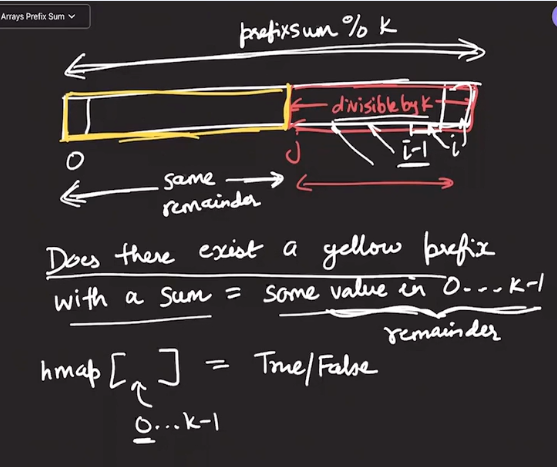 Arrays Prefix Sum
prefixsum % K
divisible by K
0
j
i-1
i
same
remainder
Does there exist a yellow prefix
with a sum = some value in 0...k-1
remainder
hmap [ ] = True/False
0...k-1